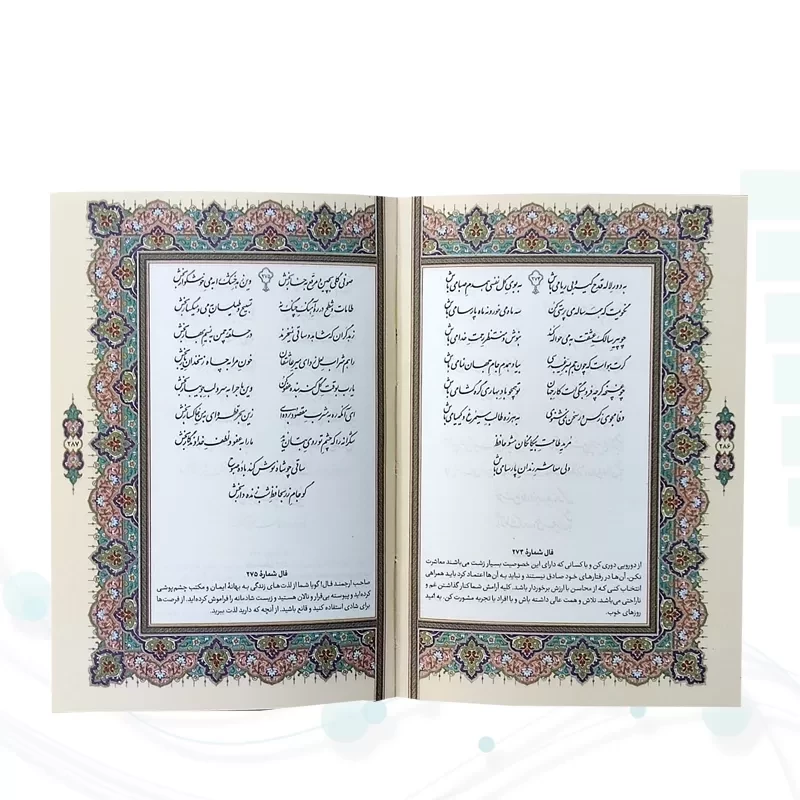 به دور لاله قدح گیر و بی ریا می باش به بوی گل نفسی همدم صبا می باش
نگویمت که همه ساله می پرستی کن سه ماه می خور و نه ماه پارسا می باش
چو پیر سالک عشقت به می حواله کند بنوش و منتظر رحمت خدا می باش
گرت هواست که چون جم به سر غیب رسی بیا و همدم جام جهان نما می باش
چو غنچه گرچه فروبستگی است کار جهان تو همچو باد بهاری گره گشا می باش
وفا مجوی ز کس ور سخن نمی شنوی به هرزه طالب سیمرغ و کیمیا می باش
مرید طاعت بیگانگان مشو حافظ
ولی معاشر رندان پارسا می باش
فال شمارهٔ ۲۷۴
از دورویی دوری کن و با کسانی که دارای این خصوصیت بسیار زشت می باشند معاشرت
نکن. آن‌ها در رفتارهای خود صادق نیستند و نباید به آن‌ها اعتماد کرد باید همراهی
انتخاب کنی که از محاسن با ارزش برخوردار باشد. کلیه آرامش شما کنار گذاشتن غم و
ناراحتی می‌باشد. تلاش و همت عالی داشته باش و با افراد با تجربه مشورت کن. به امید
روزهای خوب.
۲۸۶
صوفی گلی بچین و مرقع به خار بخش وین زهد خشک را به می خوشگوار بخش
طامات و شطح در ره آهنگ چنگ نه تسبیح و طیلسان به می و میگسار بخش
زهد گران که شاهد و ساقی نمی‌خرند در حلقه چمن به نسیم بهار بخش
راهم شراب لعل زد ای میر عاشقان خون مرا به چاه زنخدان یار بخش
یارب به وقت گل گنه بنده عفو کن وین ماجرا به سرو لب جویبار بخش
ای آنکه ره به مشرب مقصود برده‌ای زین بحر قطره‌ای به من خاکسار بخش
شکرانه را که چشم تو روی بتان ندید ما را به عفو و لطف خداوندگار بخش
ساقی چو شاه نوش کند باده صبوح
گو جام زر به حافظ شب زنده دار بخش
فال شمارهٔ ۲۷۵
صاحب ارجمند فال! گویا شما از لذت‌های زندگی به بهانهٔ ایمان و مکتب چشم‌پوشی
کرده‌اید و پیوسته بی‌قرار و نالان هستید و زیست شادمانه را فراموش کرده‌اید. از فرصت‌ها
برای شادی استفاده کنید و قانع باشید. از آنچه که دارید لذت ببرید.
۲۸۷